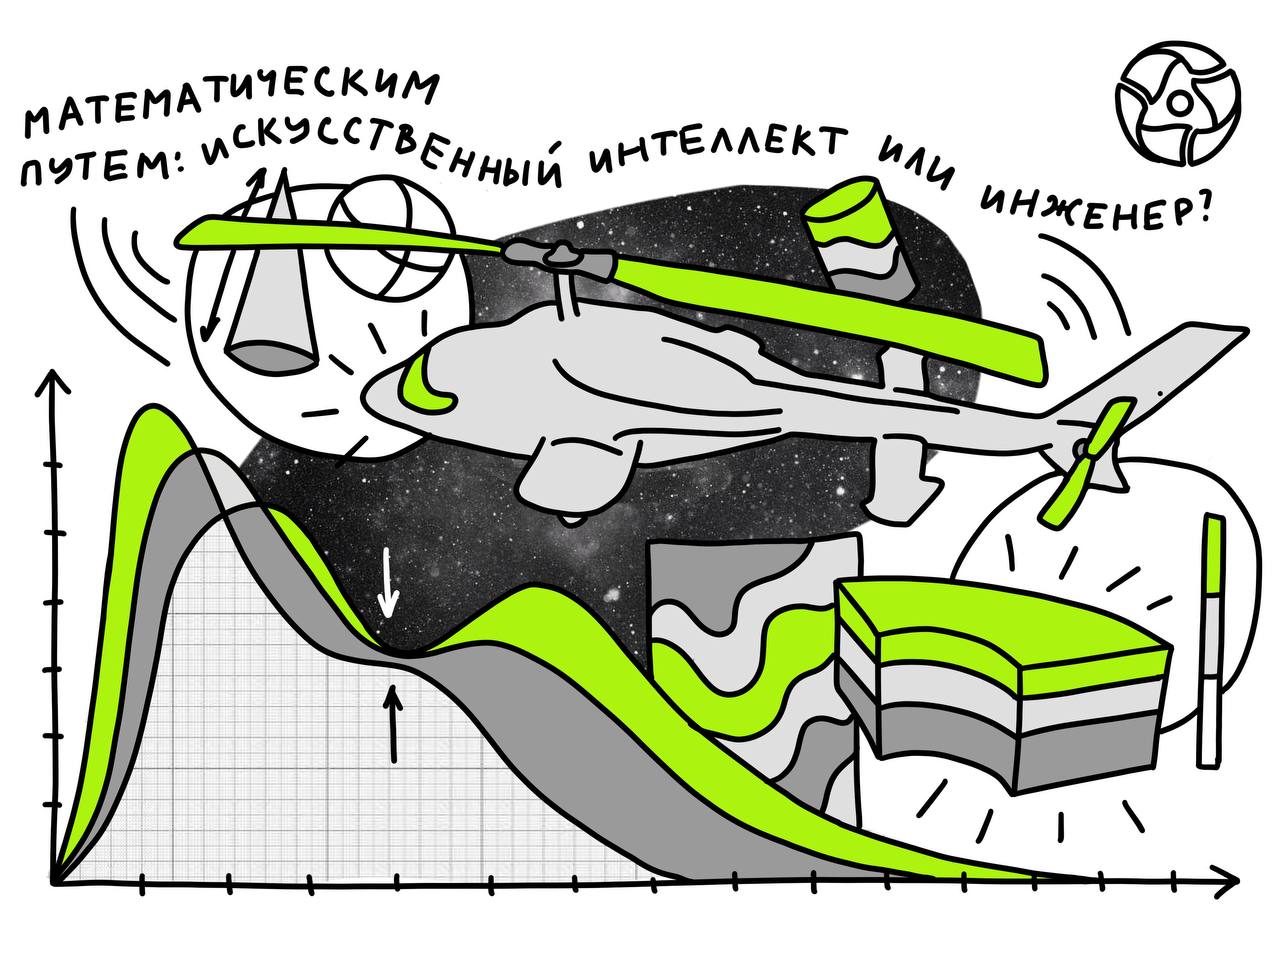 МАТЕМАТИЧЕСКИМ
ПУТЕМ: ИСКУССТВЕННЫЙ ИНТЕЛЛЕКТ ИЛИ ИНЖЕНЕР?